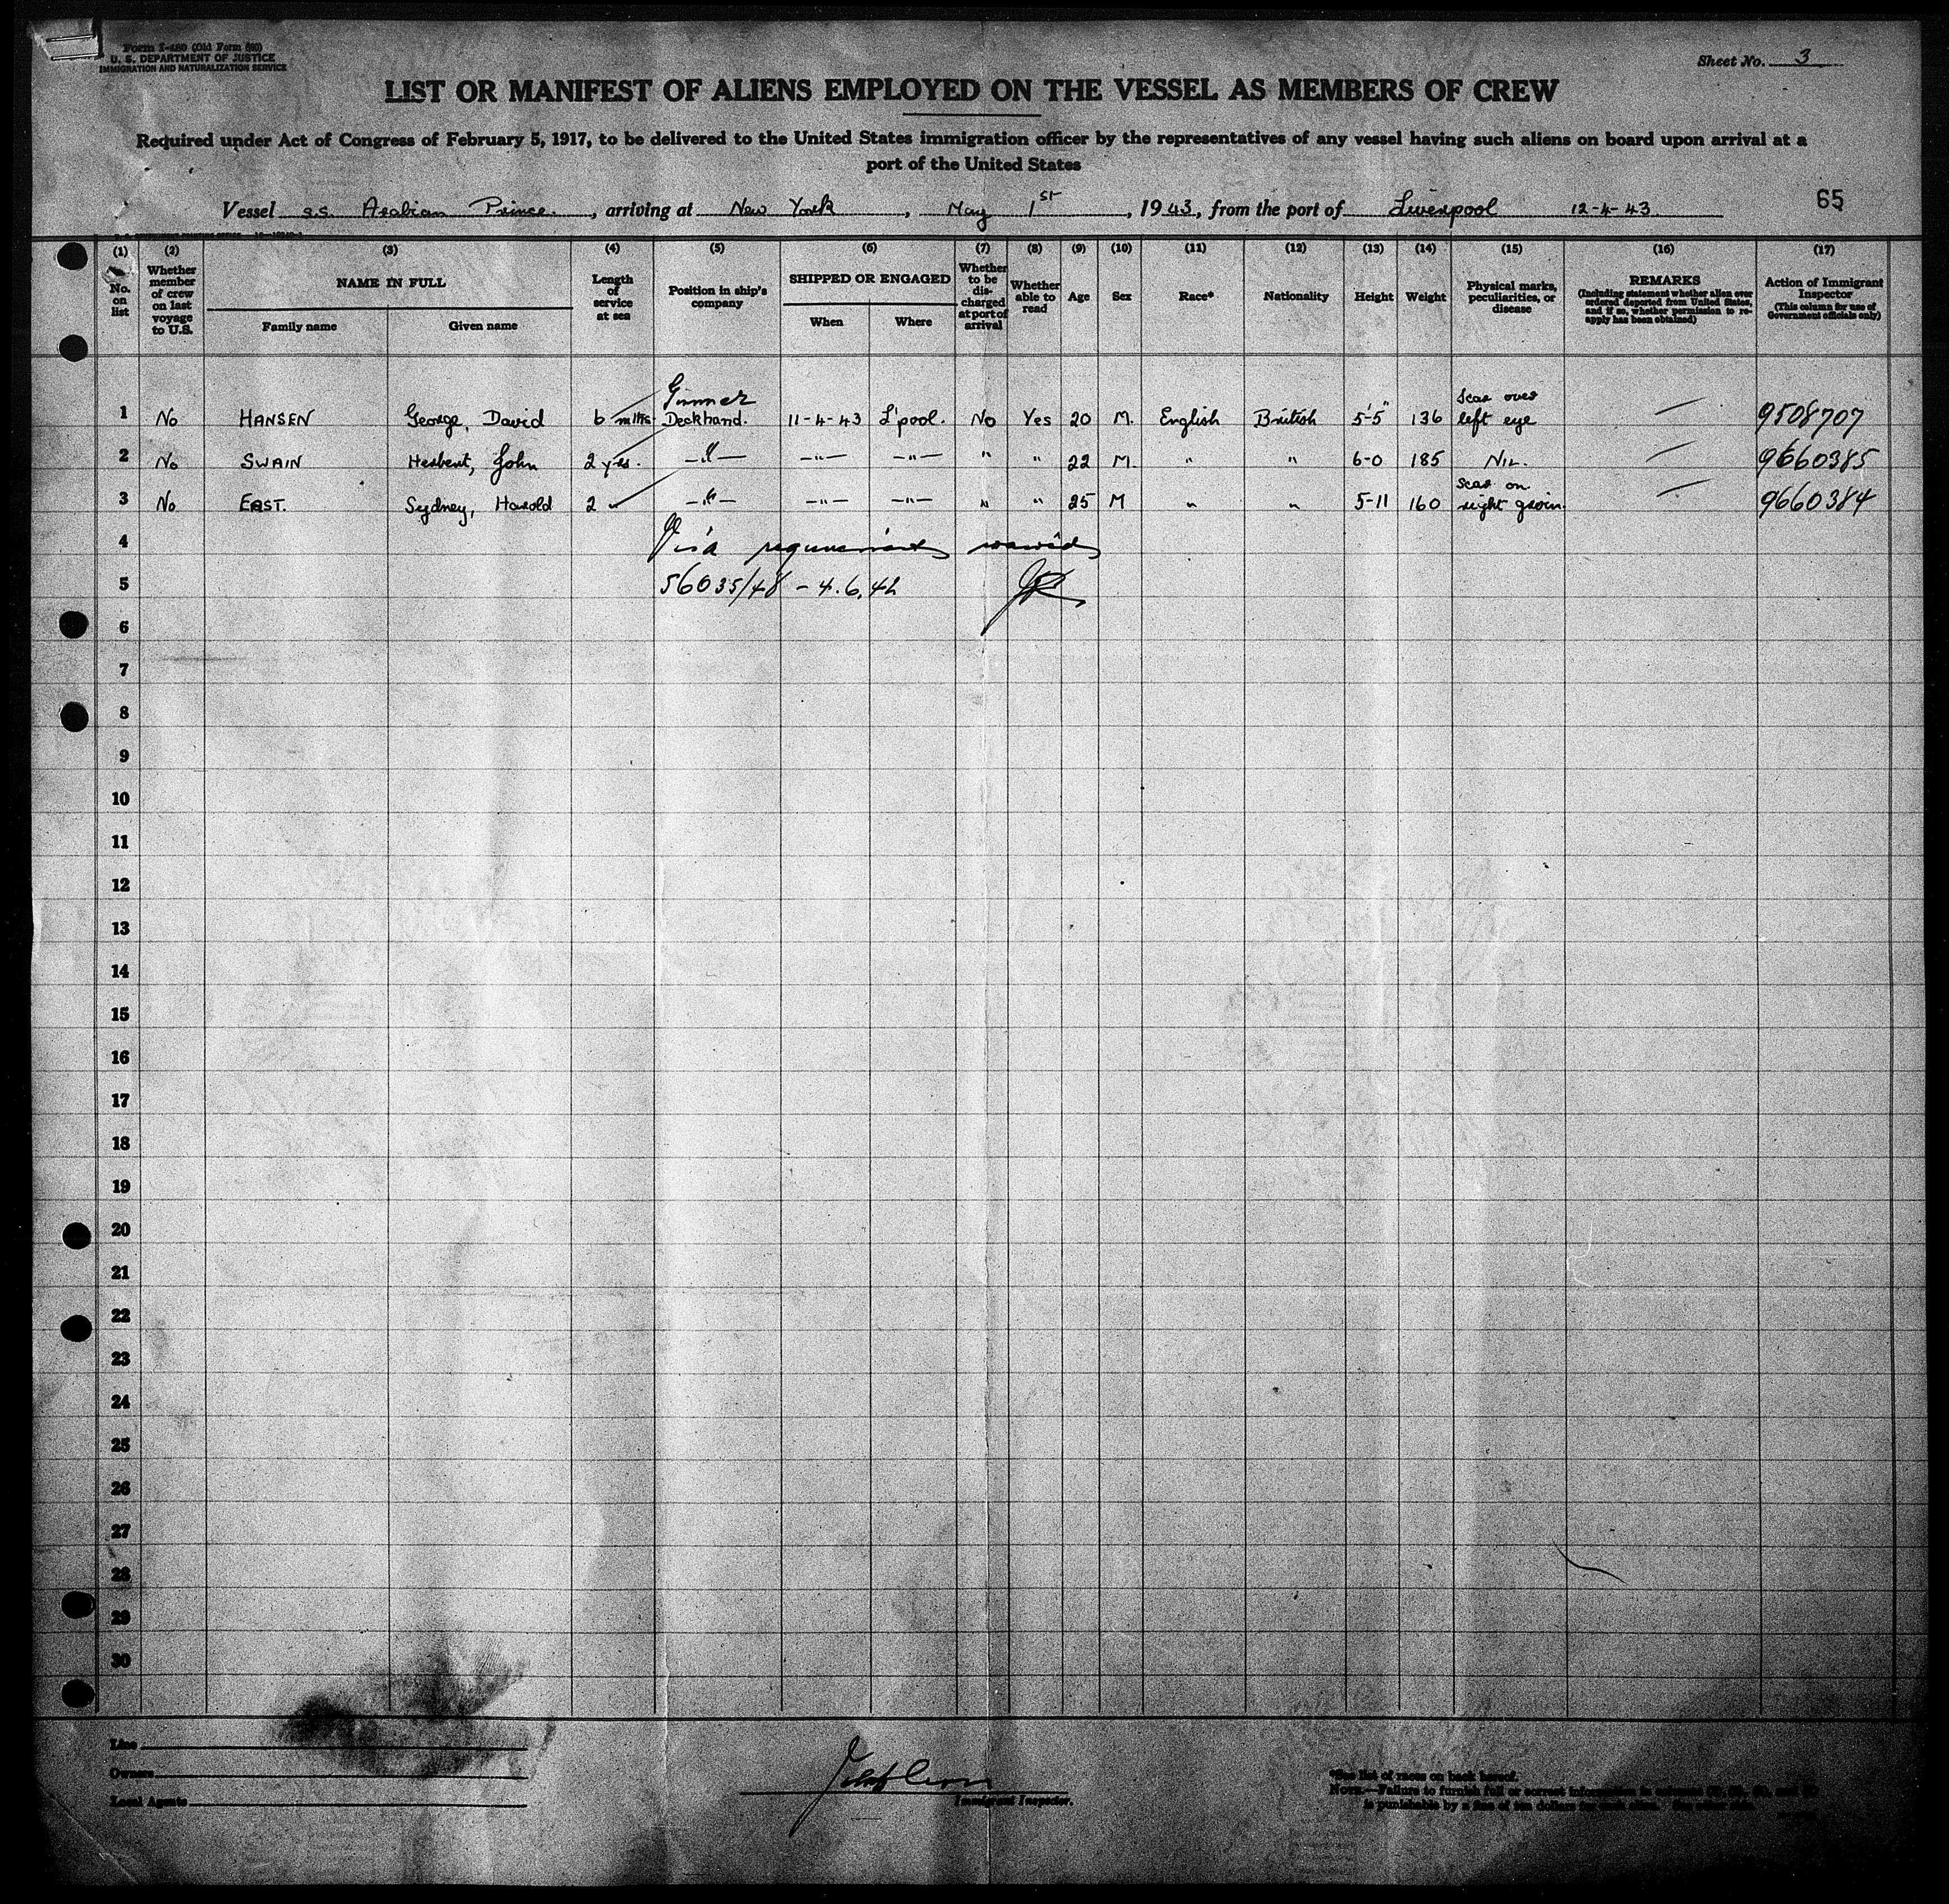 Form I-480 (Old Form 680)
U. S. DEPARTMENT OF JUSTICE
IMMIGRATION AND NATURALIZATION SERVICE
Sheet No. 3
LIST OR MANIFEST OF ALIENS EMPLOYED ON THE VESSEL AS MEMBERS OF CREW
Required under Act of Congress of February 5, 1917, to be delivered to the United States immigration officer by the representatives of any vessel having such aliens on board upon arrival at a
port of the United States
Vessel s.s. Arabian Prince., arriving at New York, May 1st, 1943, from the port of Liverpool 12-4-43.
65
(1) (2) (3) (4) (5) (6) (7) (8) (9) (10) (11) (12) (13) (14) (15) (16) (17)
No. on list
Whether member of crew on last voyage to U.S.
NAME IN FULL
Family name Given name
Length of service at sea
Position in ship's company
SHIPPED OR ENGAGED
When Where
Whether to be discharged at port of arrival
Whether able to read
Age
Sex
Race*
Nationality
Height
Weight
Physical marks, peculiarities, or disease
REMARKS
(Including statement whether alien ever ordered deported from United States, and if so, whether permission to reapply has been obtained)
Action of Immigrant Inspector
(This column for use of Government officials only)
Gunner
1 No HANSEN George, David 6 mths. Deckhand. 11-4-43 L'pool. No Yes 20 M. English British 5'-5" 136 Scar over left eye — 9508707
2 No SWAIN Herbert, John 2 yrs. —"— —"— —"— " " 22 M. " " 6-0 185 NIL. — 9660385
3 No EAST. Sydney, Harold 2 " —"— —"— —"— " " 25 M " " 5-11 160 Scar on right groin. — 9660384
4 Visa requirements waived
5 56035/48 - 4.6.42
6
7
8
9
10
11
12
13
14
15
16
17
18
19
20
21
22
23
24
25
26
27
28
29
30
Line
Owners
Local Agents
Immigrant Inspector.
*See list of races on back hereof.